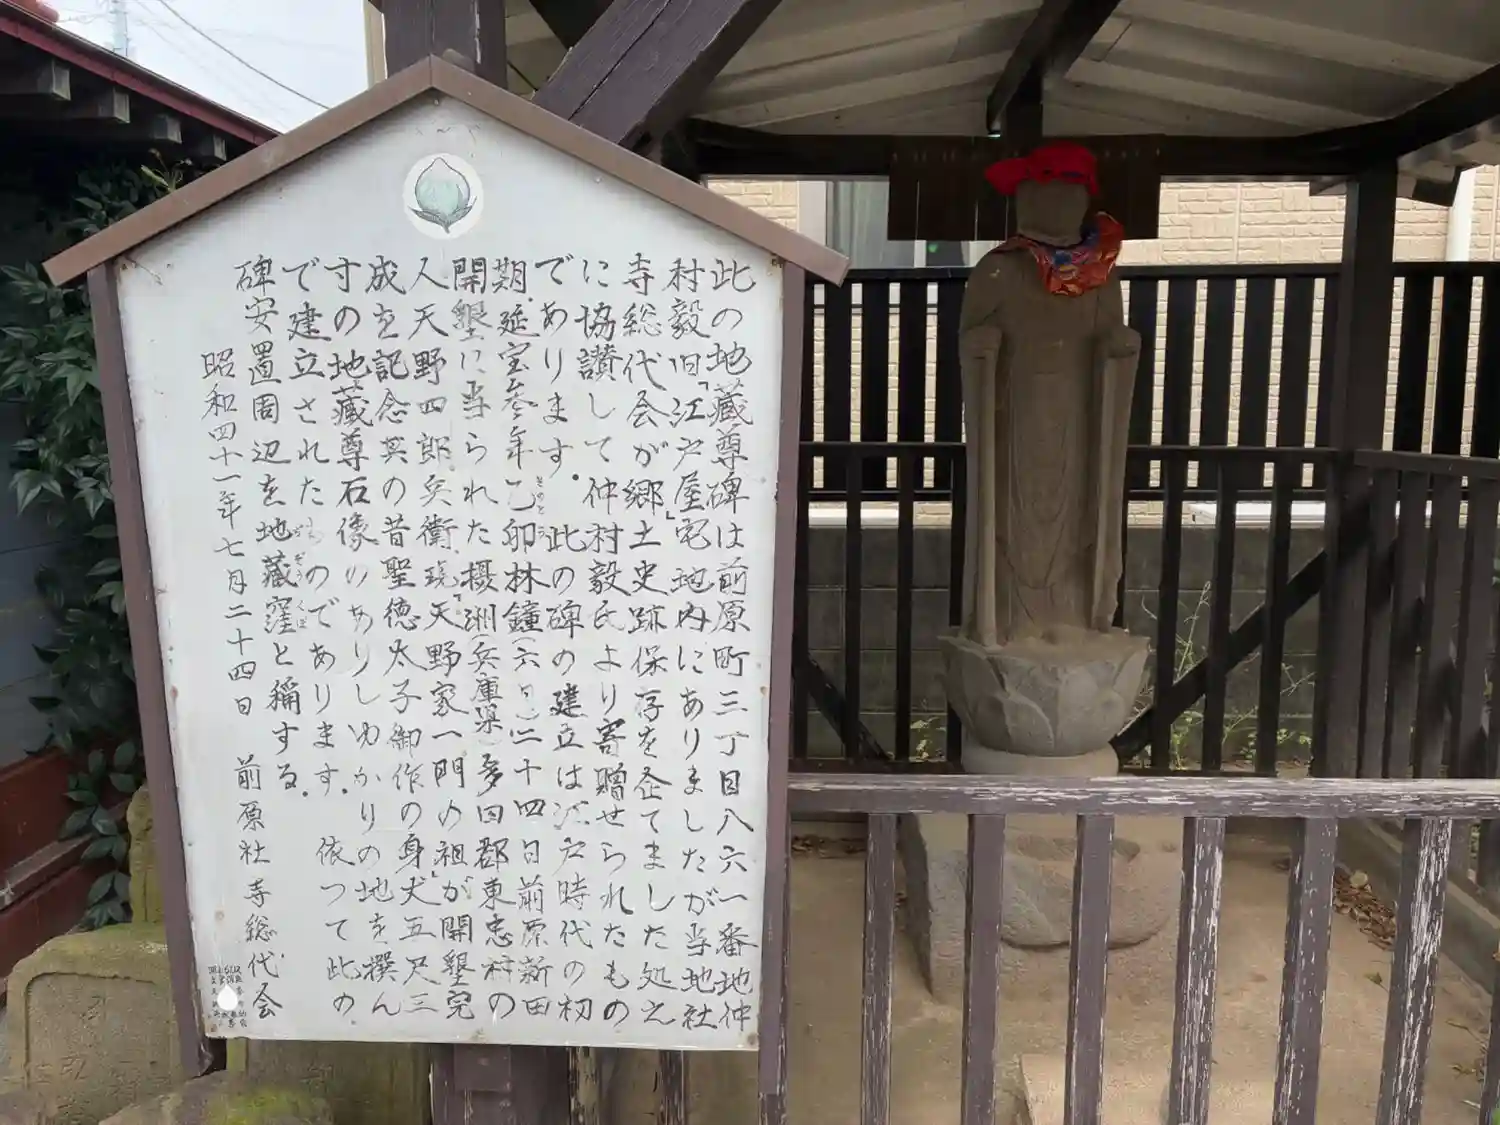 此の地蔵尊碑は前原町三丁目八六一番地仲
村毅旧「江戸屋」宅地内にありましたが当地社
寺総代会が郷土史跡保存を企てました処之
に協讃して仲村毅氏より寄贈せられたもの
であります。此の碑の建立は江戸時代の初
期.延宝参年乙卯林鐘(六月)二十四日前原新田
そのとう
開墾に当られた摂洲(兵庫県)多田郡東恵村の
人天野四郎兵衛.現「天野家一門の祖」が開墾完
成を記念其の昔聖徳太子御作の身丈五尺三
寸の地蔵尊石像のありしゆかりの地を撰ん
で建立されたものであります.依つて此の
碑安置周辺を地蔵窪と稱する.
がぞうくぼ
昭和四十一年七月二十四日 前原社寺総代会